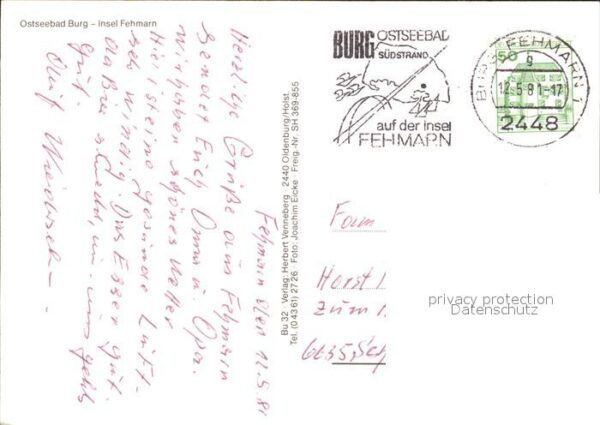 Ostseebad Burg – Insel Fehmarn
Fehmarn den 12.5.81
Herzliche Grüße aus Fehmarn
sendet Euch Omma u. Opa.
wir haben schönes Wetter
Hier ist eine gesunde Luft
sehr windig. Das Essen gut.
gut.
Auf Wiedersehn
Bu 32 Verlag: Herbert Venneberg · 2440 Oldenburg/Holst.
Tel. (0 43 61) 27 26 Foto: Joachim Eicke Freig.-Nr. SH 369-855
BURG OSTSEEBAD
SÜDSTRAND
auf der Insel
FEHMARN
BURG FEHMARN 1
g
12.5.81-17
2448
50
Fam
Horst
Zum
6635 Sch
privacy protection
Datenschutz